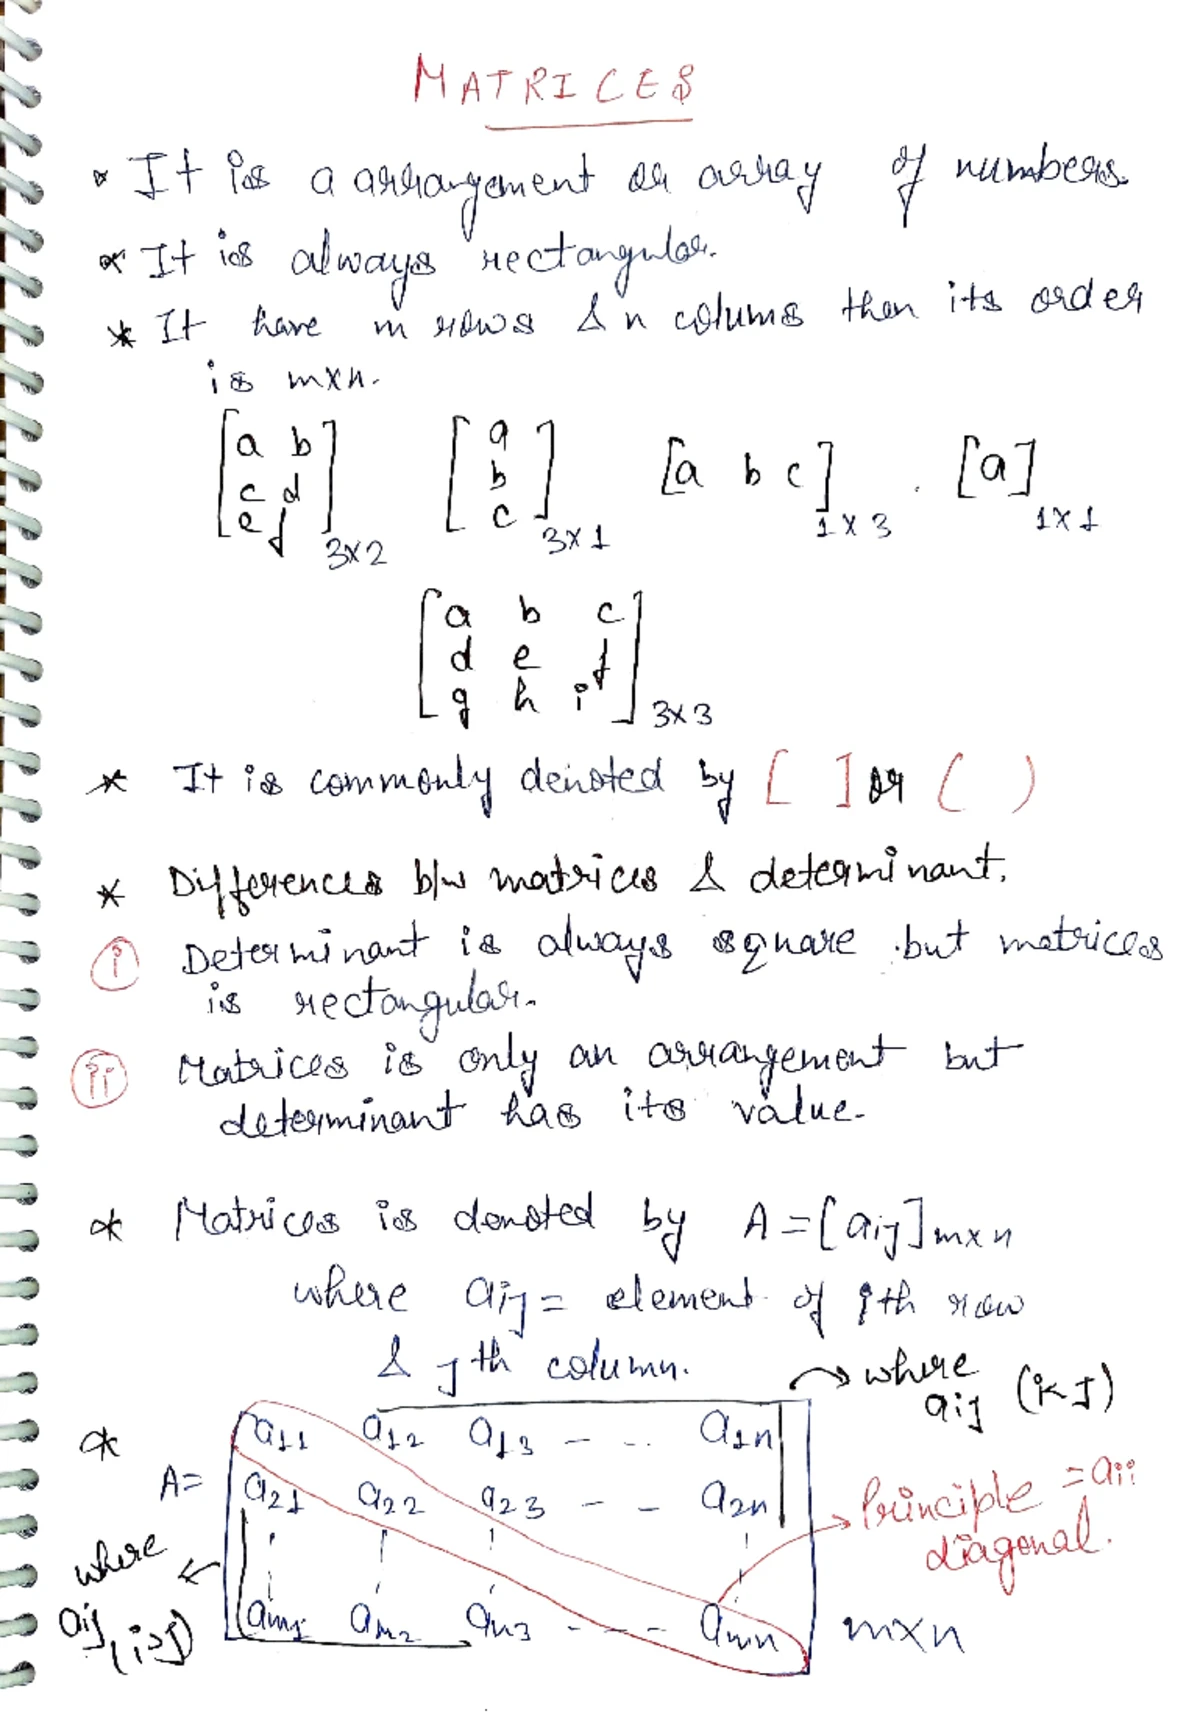 MATRICES
* It is a arrangement or array of numbers.
* It is always rectangular.
* It have m rows & n colums then its order
is m×n.
[a b
c d
e f] 3×2
[a
b
c] 3×1
[a b c] 1×3 .
[a] 1×1
[a b c
d e f
g h i] 3×3
* It is commonly denoted by [ ] or ( )
* Differences b/w matrices & determinant.
(i) Determinant is always square but matrices
is rectangular.
(ii) Matrices is only an arrangement but
determinant has its value.
* Matrices is denoted by A = [aij] m×n
where aij = element of ith row
& jth column.
→ where
aij (i<j)
* A =
a11 a12 a13 - - a1n
a21 a22 a23 - - a2n
am1 am2 am3 - - - amn
m×n
→ Principle = aii
diagonal.
where ←
aij, (i>j)